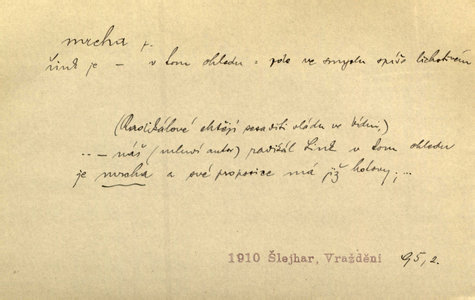 mrcha f.
Šink je — v tom ohledu = zde ve smyslu spíše lichotivém
(Radikálové chtějí sesaditi vládu ve Vídni,)
.. — náš (mluví autor) radikál Šink v tom ohledu
je mrcha a své propozice má již hotovy; ...
1910 Šlejhar, Vraždění 95, 2.